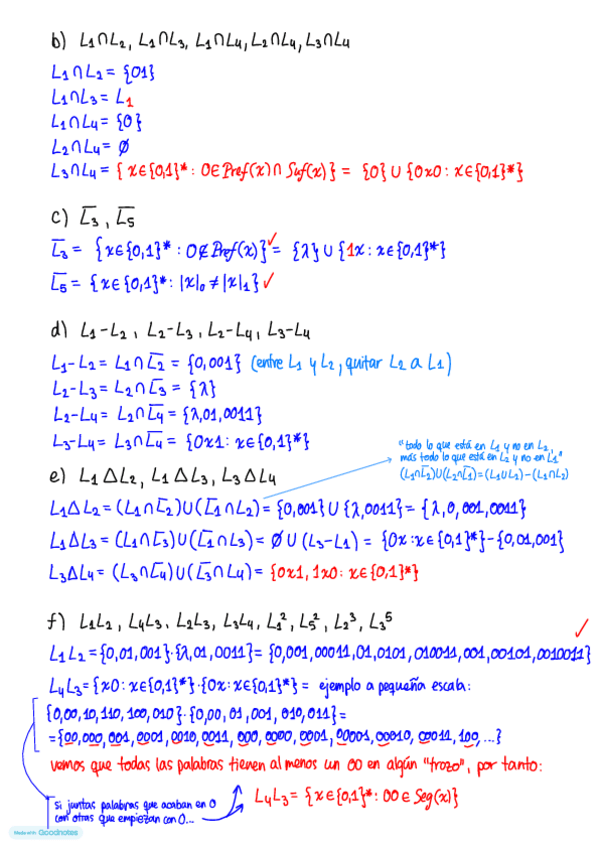 b) L₁∩L₂, L₁∩L₃, L₁∩L₄, L₂∩L₄, L₃∩L₄
L₁∩L₂ = {01}
L₁∩L₃ = L₁
L₁∩L₄ = {0}
L₂∩L₄ = ∅
L₃∩L₄ = {x∈{0,1}* : 0∈Pref(x)∩Suf(x)} = {0} ∪ {0x0 : x∈{0,1}*}
c) L̅₃, L̅₅
L̅₃ = {x∈{0,1}* : 0∉Pref(x)}✓ = {λ} ∪ {1x : x∈{0,1}*}
L̅₅ = {x∈{0,1}* : |x|₀ ≠ |x|₁} ✓
d) L₁-L₂, L₂-L₃, L₂-L₄, L₃-L₄
L₁-L₂ = L₁∩L̅₂ = {0,001} (entre L₁ y L₂, quitar L₂ a L₁)
L₂-L₃ = L₂∩L̅₃ = {λ}
L₂-L₄ = L₂∩L̅₄ = {λ,01,0011}
L₃-L₄ = L₃∩L̅₄ = {0x1 : x∈{0,1}*}
"todo lo que está en L₁ y no en L₂,
más todo lo que está en L₂ y no en L₁"
(L₁∩L̅₂)∪(L₂∩L̅₁)=(L₁∪L₂)-(L₁∩L₂)
e) L₁△L₂, L₁△L₃, L₃△L₄
L₁△L₂ = (L₁∩L̅₂)∪(L̅₁∩L₂) = {0,001}∪{λ,0011} = {λ,0,001,0011}
L₁△L₃ = (L₁∩L̅₃)∪(L̅₁∩L₃) = ∅∪(L₃-L₁) = {0x : x∈{0,1}*}-{0,01,001}
L₃△L₄ = (L₃∩L̅₄)∪(L̅₃∩L₄) = {0x1, 1x0 : x∈{0,1}*}
f) L₁L₂, L₄L₃, L₂L₃, L₃L₄, L₁², L₅², L₂³, L₃⁵
✓
L₁L₂ = {0,01,001}·{λ,01,0011} = {0,001,00011,01,0101,010011,001,00101,0010011}
L₄L₃ = {x0 : x∈{0,1}*}·{0x : x∈{0,1}*} = ejemplo a pequeña escala:
{0,00,10,110,100,010}·{0,00,01,001,010,011} =
= {00,000,001,0001,0010,0011,000,0000,0001,00001,00010,00011,100,...}
vemos que todas las palabras tienen al menos un 00 en algún "trozo", por tanto:
L₄L₃ = {x∈{0,1}* : 00∈Seg(x)}
si juntas palabras que acaban en 0
con otras que empiezan con 0...
Made with Goodnotes